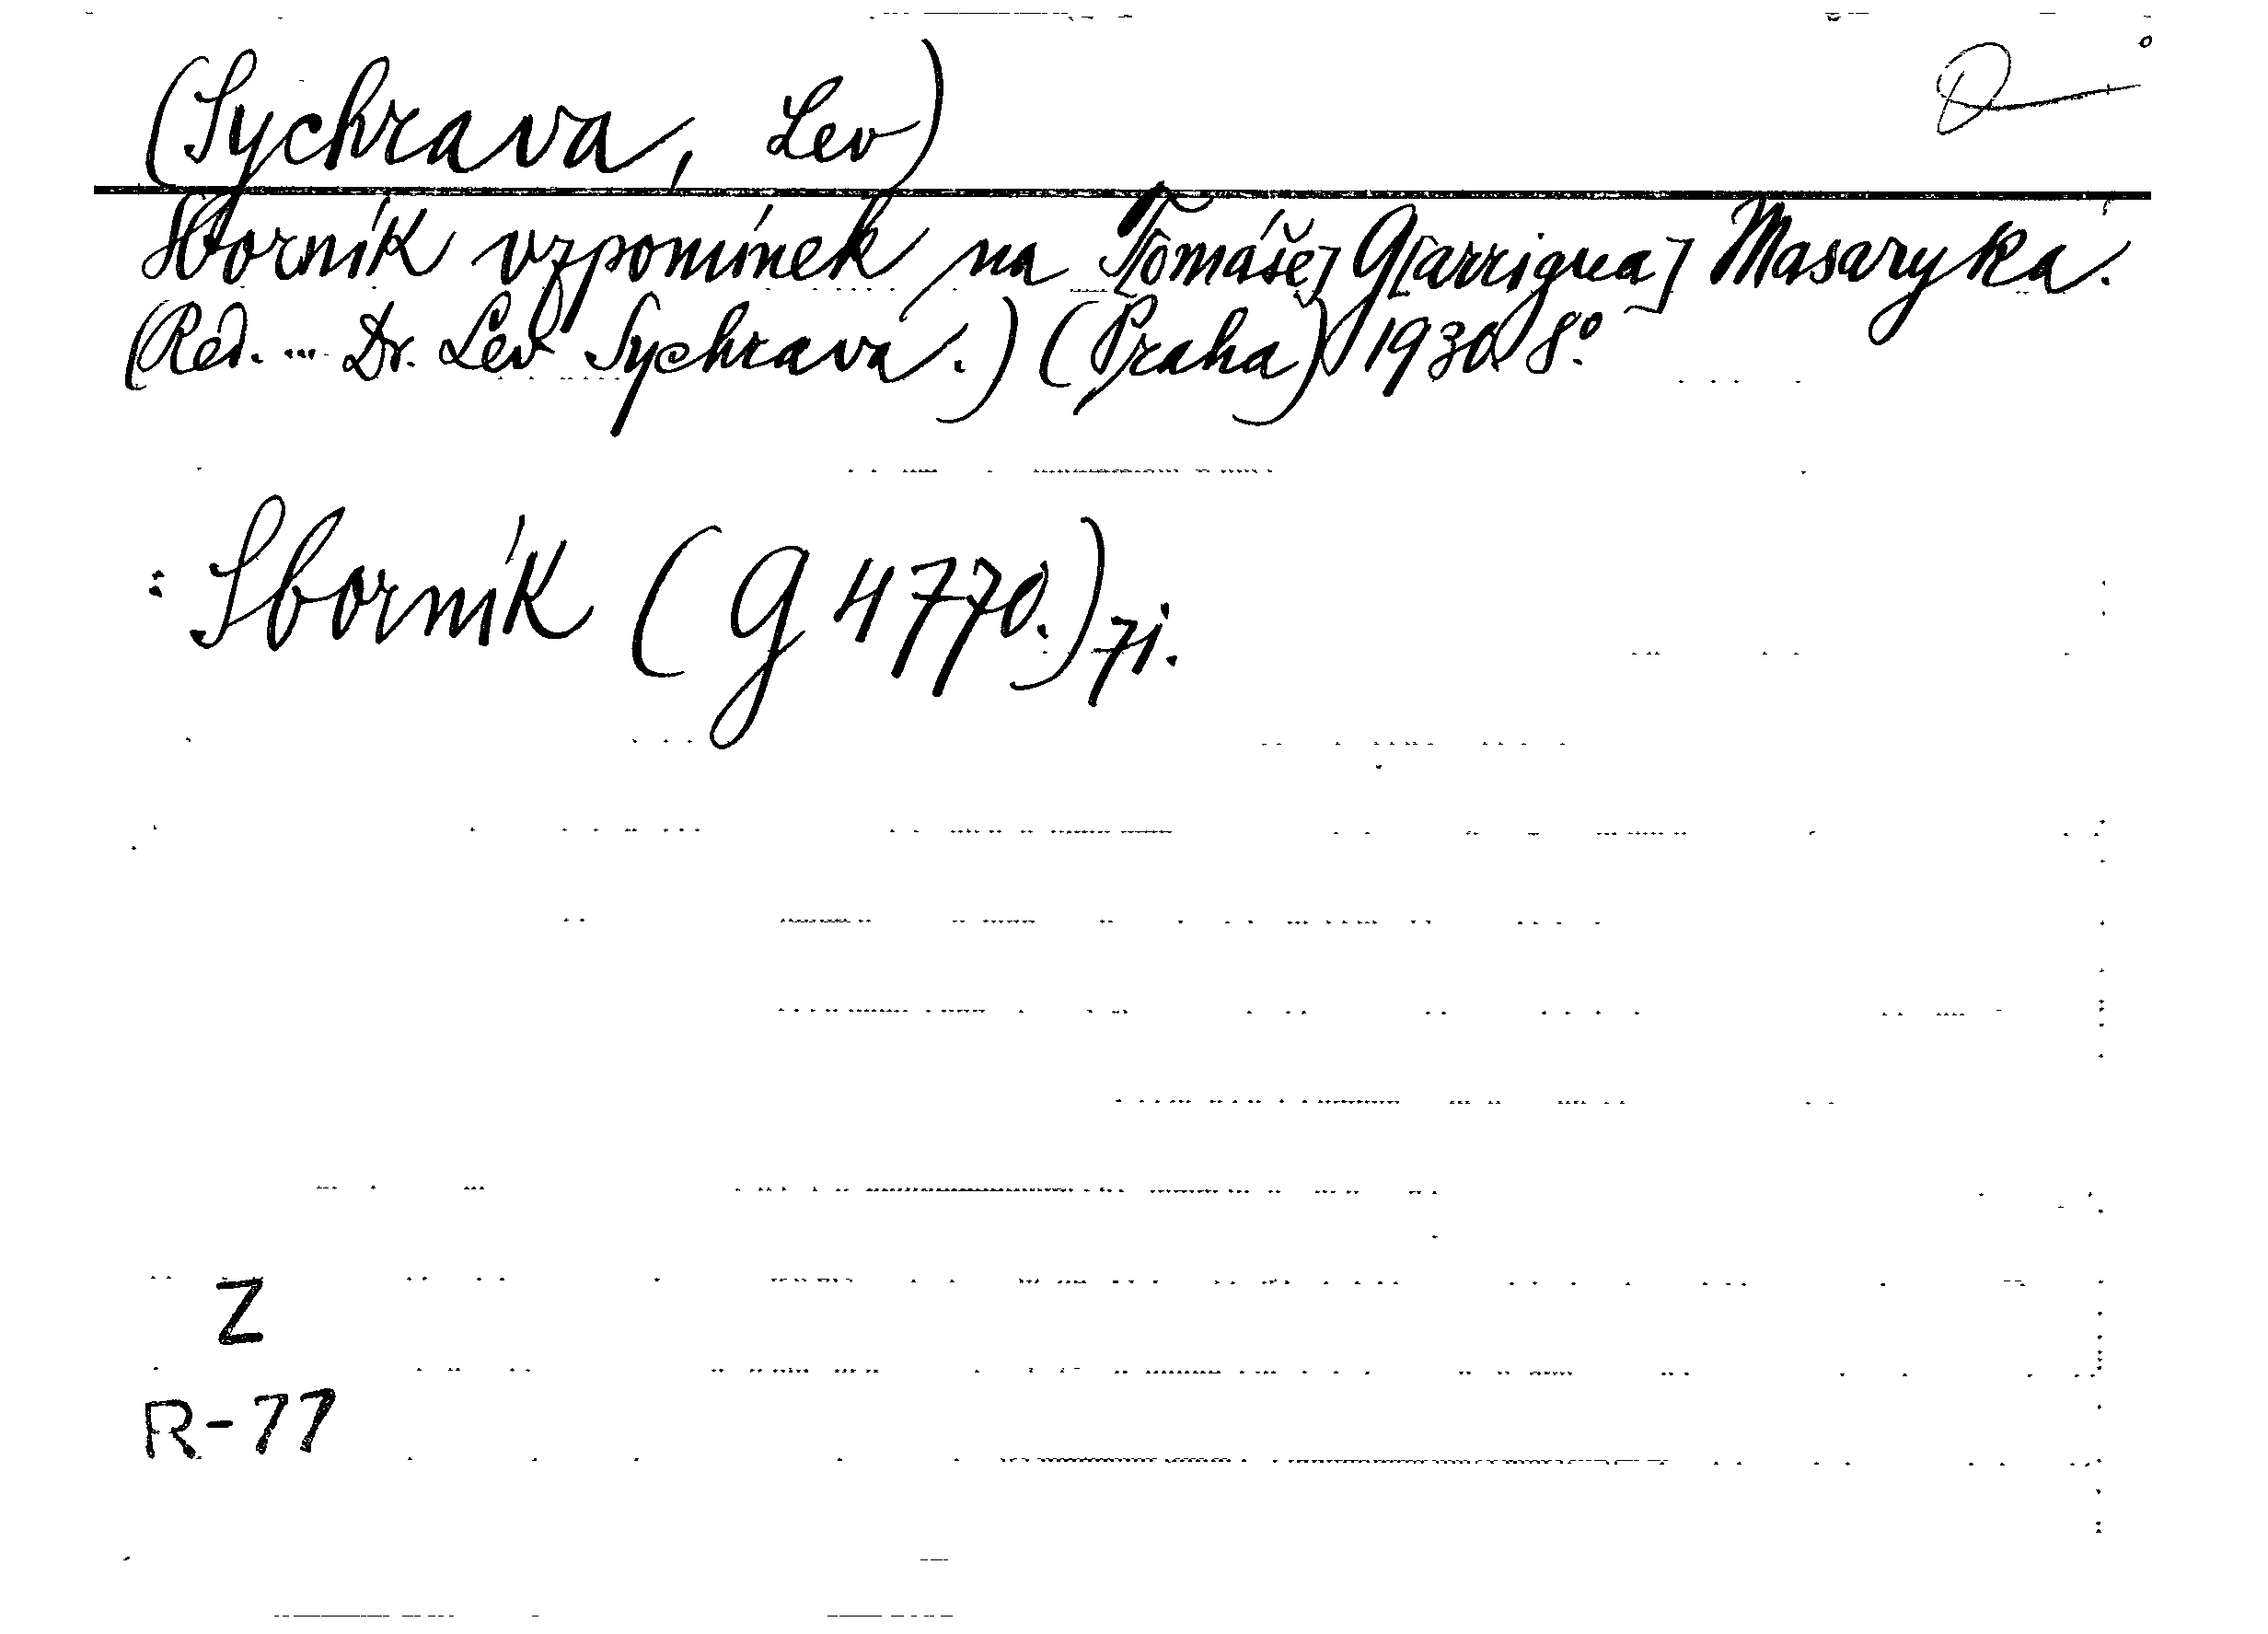 (Sychrava, Lev)
Sborník vzpomínek na T[omáše] G[arrigua] Masaryka.
(Red. ... Dr. Lev Sychrava.) (Praha) 1930. 8°.
: Sborník (G 4770.) 7i.
Z
R-77